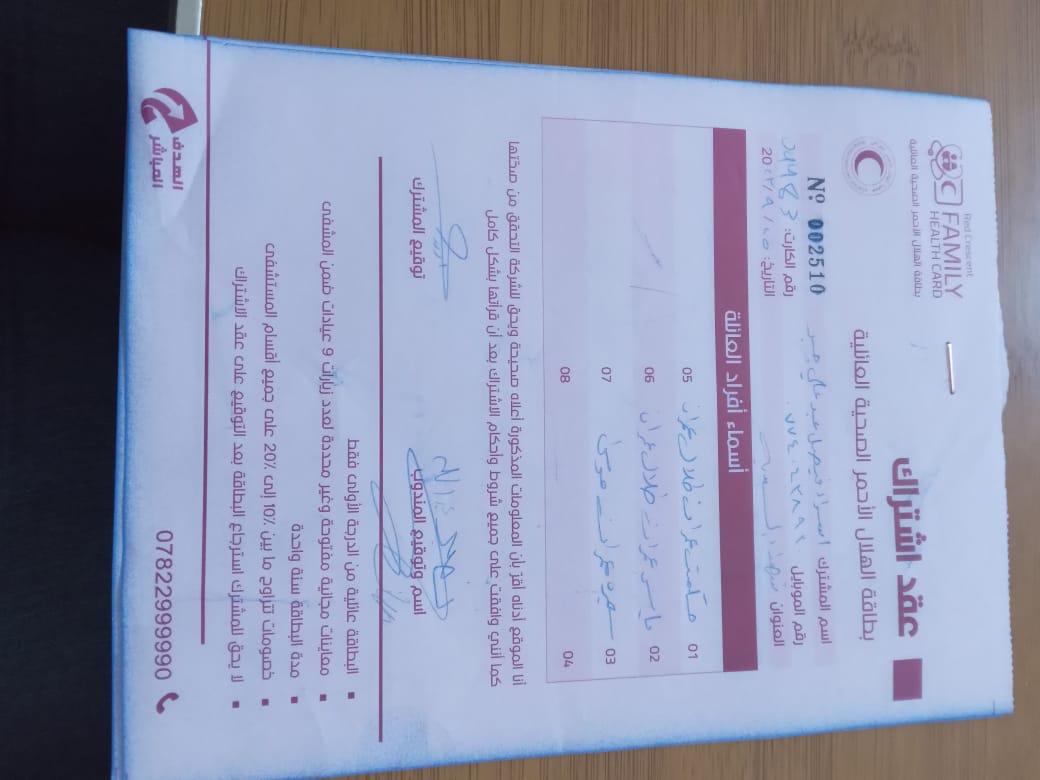 Red Crescent
FAMILY
HEALTH CARD
بطاقة الهلال الأحمر الصحية العائلية
عقد اشتراك
بطاقة الهلال الأحمر الصحية العائلية
Nº 002510
اسم المشترك اسراء فيصل عبد علي جبر
رقم الموبايل ٠٧٧٤٠٤٣٨٩٢٠
رقم الكارت:
العنوان شهداء
التاريخ:
أسماء أفراد العائلة
01 حكمت عمران طلال عمران
02 ياسر عمران طلال عمران
03 سميره عمران موسى
04
05
06
07
08
أنا الموقع أدناه أقرّ بأن المعلومات المذكورة أعلاه صحيحة ويحق للشركة التحقق من صحّتها
كما أنني وافقت على جميع شروط وأحكام الاشتراك بعد أن قرأتها بشكل كامل
اسم وتوقيع المندوب
توقيع المشترك
▪ البطاقة عائلية من الدرجة الأولى فقط
▪ معاينات مجانية مفتوحة وغير محددة لعدد زيارات 9 عيادات ضمن المشفى
▪ مدة البطاقة سنة واحدة
▪ خصومات تتراوح ما بين 10٪ إلى 20٪ على جميع أقسام المستشفى
▪ لا يحق للمشترك استرجاع البطاقة بعد التوقيع على عقد الاشتراك
07822999990
الهدف
المباشر